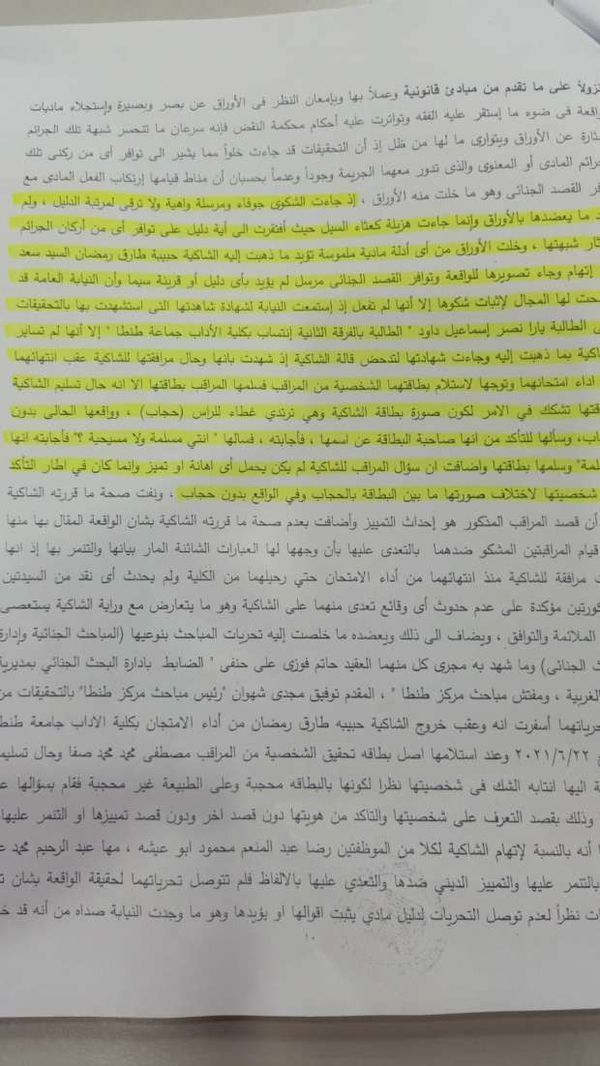 نزولاً على ما تقدم من مبادئ قانونية وعملاً بها وبإمعان النظر فى الأوراق عن بصر وبصيرة وإستجلاء ماديات
واقعة فى ضوء ما إستقر عليه الفقه وتواترت عليه أحكام محكمة النقض فإنه سرعان ما تنحسر شبهة تلك الجرائم
ثارة عن الأوراق ويتوارى ما لها من ظل إذ أن التحقيقات قد جاءت خلواً مما يشير الى توافر أى من ركنى تلك
جرائم المادى أو المعنوى والذى تدور معهما الجريمة وجوداً وعدماً بحسبان أن مناط قيامها إرتكاب الفعل المادى مع
فر القصد الجنائى وهو ما خلت منه الأوراق ، إذ جاءت الشكوى جوفاء ومرسلة واهية ولا ترقى لمرتبة الدليل ، ولم
د ما يعضدها بالأوراق وإنما جاءت هزيلة كغثاء السيل حيث أفتقرت الى أية دليل على توافر أى من أركان الجرائم
ثار شبهتها ، وخلت الأوراق من أى أدلة مادية ملموسة تؤيد ما ذهبت إليه الشاكية حبيبة طارق رمضان السيد سعد
إتهام وجاء تصويرها للواقعة وتوافر القصد الجنائى مرسل لم يؤيد بأى دليل أو قرينة سيما وأن النيابة العامة قد
حت لها المجال لإثبات شكوها إلا أنها لم تفعل إذ إستمعت النيابة لشهادة شاهدتها التى استشهدت بها بالتحقيقات
ى الطالبة يارا نصر إسماعيل داود " الطالبة بالفرقة الثانية إنتساب بكلية الأداب جماعة طنطا " إلا أنها لم تساير
اكية بما ذهبت إليه وجاءت شهادتها لتدحض قالة الشاكية إذ شهدت بانها وحال مرافقتها للشاكية عقب انتهائهما
اداء امتحانهما وتوجها لاستلام بطاقتهما الشخصية من المراقب فسلمها المراقب بطاقتها الا انه حال تسليم الشاكية
قتها تشكك في الامر لكون صورة بطاقة الشاكية وهي ترتدي غطاء للراس (حجاب) ، وواقعها الحالى بدون
اب، وسألها للتأكد من انها صاحبة البطاقة عن اسمها ، فأجابته ، فسالها" انتي مسلمة ولا مسيحية ؟" فأجابته انها
لمة" وسلمها بطاقتها واضافت ان سؤال المراقب للشاكية لم يكن يحمل أى اهانة او تميز وانما كان في اطار التأكد
شخصيتها لاختلاف صورتها ما بين البطاقة بالحجاب وفي الواقع بدون حجاب ، ونفت صحة ما قررته الشاكية
أن قصد المراقب المذكور هو إحداث التمييز وأضافت بعدم صحة ما قررته الشاكية بشان الواقعة المقال بها منها
قيام المراقبتين المشكو ضدهما بالتعدى عليها بأن وجهها لها العبارات الشائنة المار بيانها والتنمر بها إذ انها
ت مرافقة للشاكية منذ انتهائهما من أداء الامتحان حتي رحيلهما من الكلية ولم يحدث أى نقد من السيدتين
كورتين مؤكدة على عدم حدوث أى وقائع تعدى منهما على الشاكية وهو ما يتعارض مع وراية الشاكية يستعصى
الملائمة والتوافق ، ويضاف الى ذلك ويعضده ما خلصت إليه تحريات المباحث بنوعيها (المباحث الجنائية وإدارة
ث الجنائى) وما شهد به مجرى كل منهما العقيد حاتم فوزى على حنفى " الضابط بادارة البحث الجنائي بمديرية
الغربية ، ومفتش مباحث مركز طنطا " ، المقدم توفيق مجدى شهوان "رئيس مباحث مركز طنطا" بالتحقيقات من
حرياتهما أسفرت انه وعقب خروج الشاكية حبيبه طارق رمضان من أداء الامتجان بكلية الاداب جامعة طنط
٢٠٢١/٦/٢٢ وعند استلامها اصل بطاقه تحقيق الشخصية من المراقب مصطفى محمد محمد صفا وحال تسليم
ة اليها انتابه الشك فى شخصيتها نظرا لكونها بالبطاقه محجبة وعلى الطبيعة غير محجبة فقام بسؤالها ع
وذلك بقصد التعرف على شخصيتها والتاكد من هويتها دون قصد اخر ودون قصد تمييزها او التنمر عليها
ا أنه بالنسبة لإتهام الشاكية لكلا من الموظفتين رضا عبد المنعم محمود ابو عيشه ، مها عبد الرحيم محمد ع
بالتنمر عليها والتمييز الديني ضدها والتعدي عليها بالالفاظ فلم تتوصل تحرياتهما لحقيقة الواقعة بشان ت
ات نظراً لعدم توصل التحريات لدليل مادي يثبت اقوالها او يؤيدها وهو ما وجدت النيابة صداه من أنه قد خ